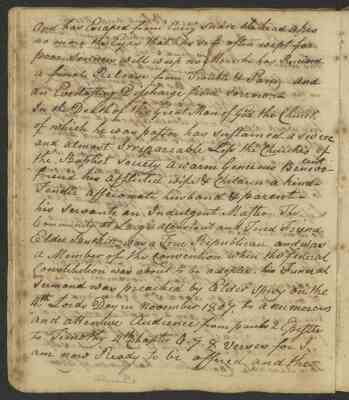 And has Escaped from Every Snare the head akes
no more the Eyes that has so often wept for
poor Sinners will weep no More he has Received
a final Release from Trouble & Pain and
an Everlasting Discharge from Sorrow
In the Death of this great Man of God the Church
of which he was pastor has Sustained a Severe
and almost Irreparable Loss the Churches of
the Baptist Society a warm Generous Benevolent
friend his Afflicted Wife & Children a kind
Tender affectionate husband & parent
his Servants an Indulgent Master The
Community at Large a and Tried friend
Elder was a True Republican and was
a Member of the Convention when the federal
Constitution was about to be adopted his Funeral
Sermond was preached by Elder on the
4th Lords Day in November 1807 to a numerous
and attentive Audience from pauls 2 Epistle
to Timothy 4th Chapter 6.7 & Verses for I
am now Ready to be offered and the